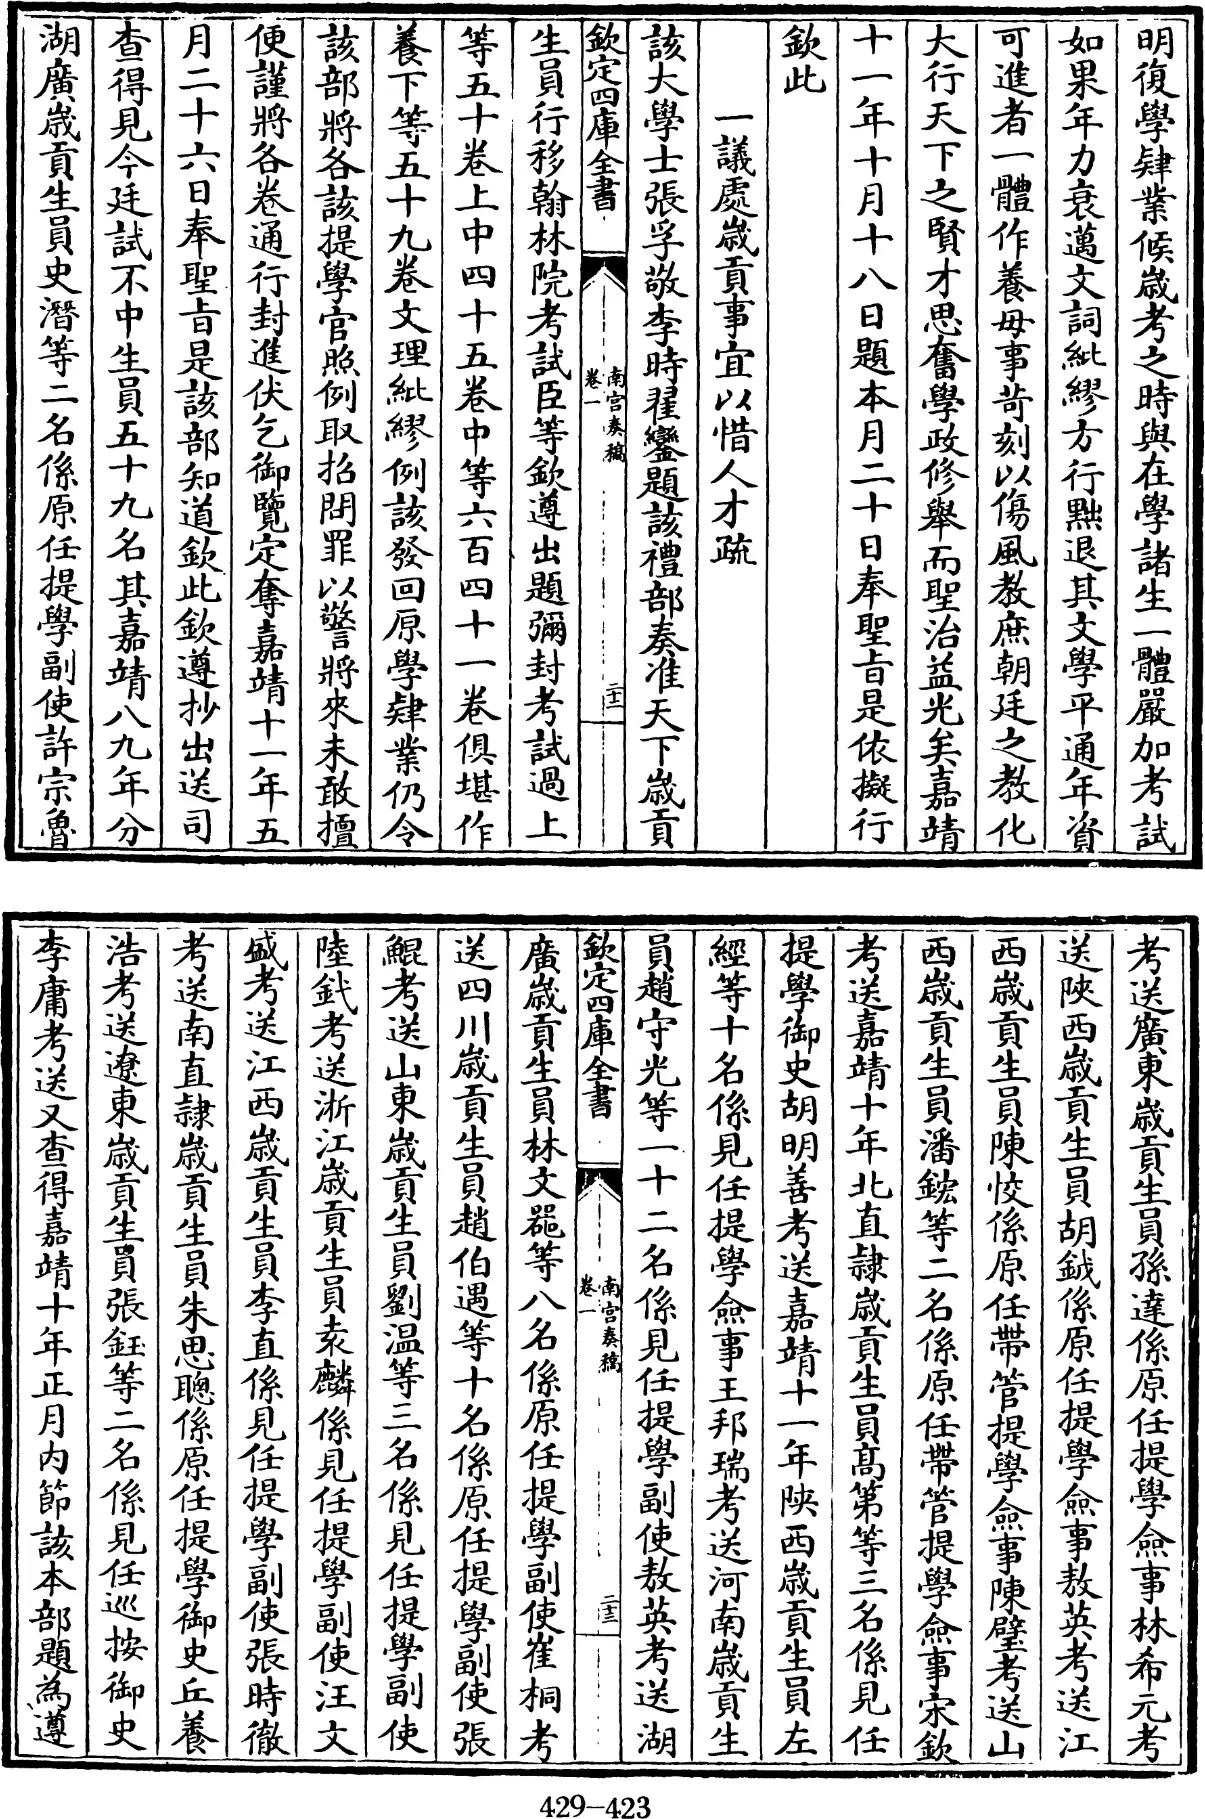 明復學肄業候歲考之時與在學諸生一體嚴加考試
如果年力衰邁文詞紕繆方行黜退其文學平通年資
可進者一體作養毋事苛刻以傷風教庶朝廷之教化
大行天下之賢才思奮學政修舉而聖治益光矣嘉靖
十一年十月十八日題本月二十日奉聖旨是依擬行
欽此
一議處歲貢事宜以惜人才疏
該大學士張孚敬李時翟鑾題該禮部奏准天下歲貢
欽定四庫全書
南宮奏稿
卷一
二十二
生員行移翰林院考試臣等欽遵出題彌封考試過上
等五十卷上中四十五卷中等六百四十一卷俱堪作
養下等五十九卷文理紕繆例該發回原學肄業仍令
該部將各該提學官照例取招問罪以警將來未敢擅
便謹將各卷通行封進伏乞御覽定奪嘉靖十一年五
月二十六日奉聖旨是該部知道欽此欽遵抄出送司
查得見今廷試不中生員五十九名其嘉靖八九年分
湖廣歲貢生員史潛等二名係原任提學副使許宗魯
考送廣東歲貢生員孫達係原任提學僉事林希元考
送陝西歲貢生員胡鉞係原任提學僉事敖英考送江
西歲貢生員陳恔係原任帶管提學僉事陳璧考送山
西歲貢生員潘鋐等二名係原任帶管提學僉事宋欽
考送嘉靖十年北直隸歲貢生員高第等三名係見任
提學御史胡明善考送嘉靖十一年陝西歲貢生員左
經等十名係見任提學僉事王邦瑞考送河南歲貢生
員趙守光等一十二名係見任提學副使敖英考送湖
欽定四庫全書
南宮奏稿
卷一
二十三
廣歲貢生員林文萢等八名係原任提學副使崔桐考
送四川歲貢生員趙伯遇等十名係原任提學副使張
鯤考送山東歲貢生員劉溫等三名係見任提學副使
陸釴考送浙江歲貢生員袁麟係見任提學副使汪文
盛考送江西歲貢生員李直係見任提學副使張時徹
考送南直隸歲貢生員朱思聰係原任提學御史丘養
浩考送遼東歲貢生員張鈺等二名係見任巡按御史
李庸考送又查得嘉靖十年正月內節該本部題為遵
429-423